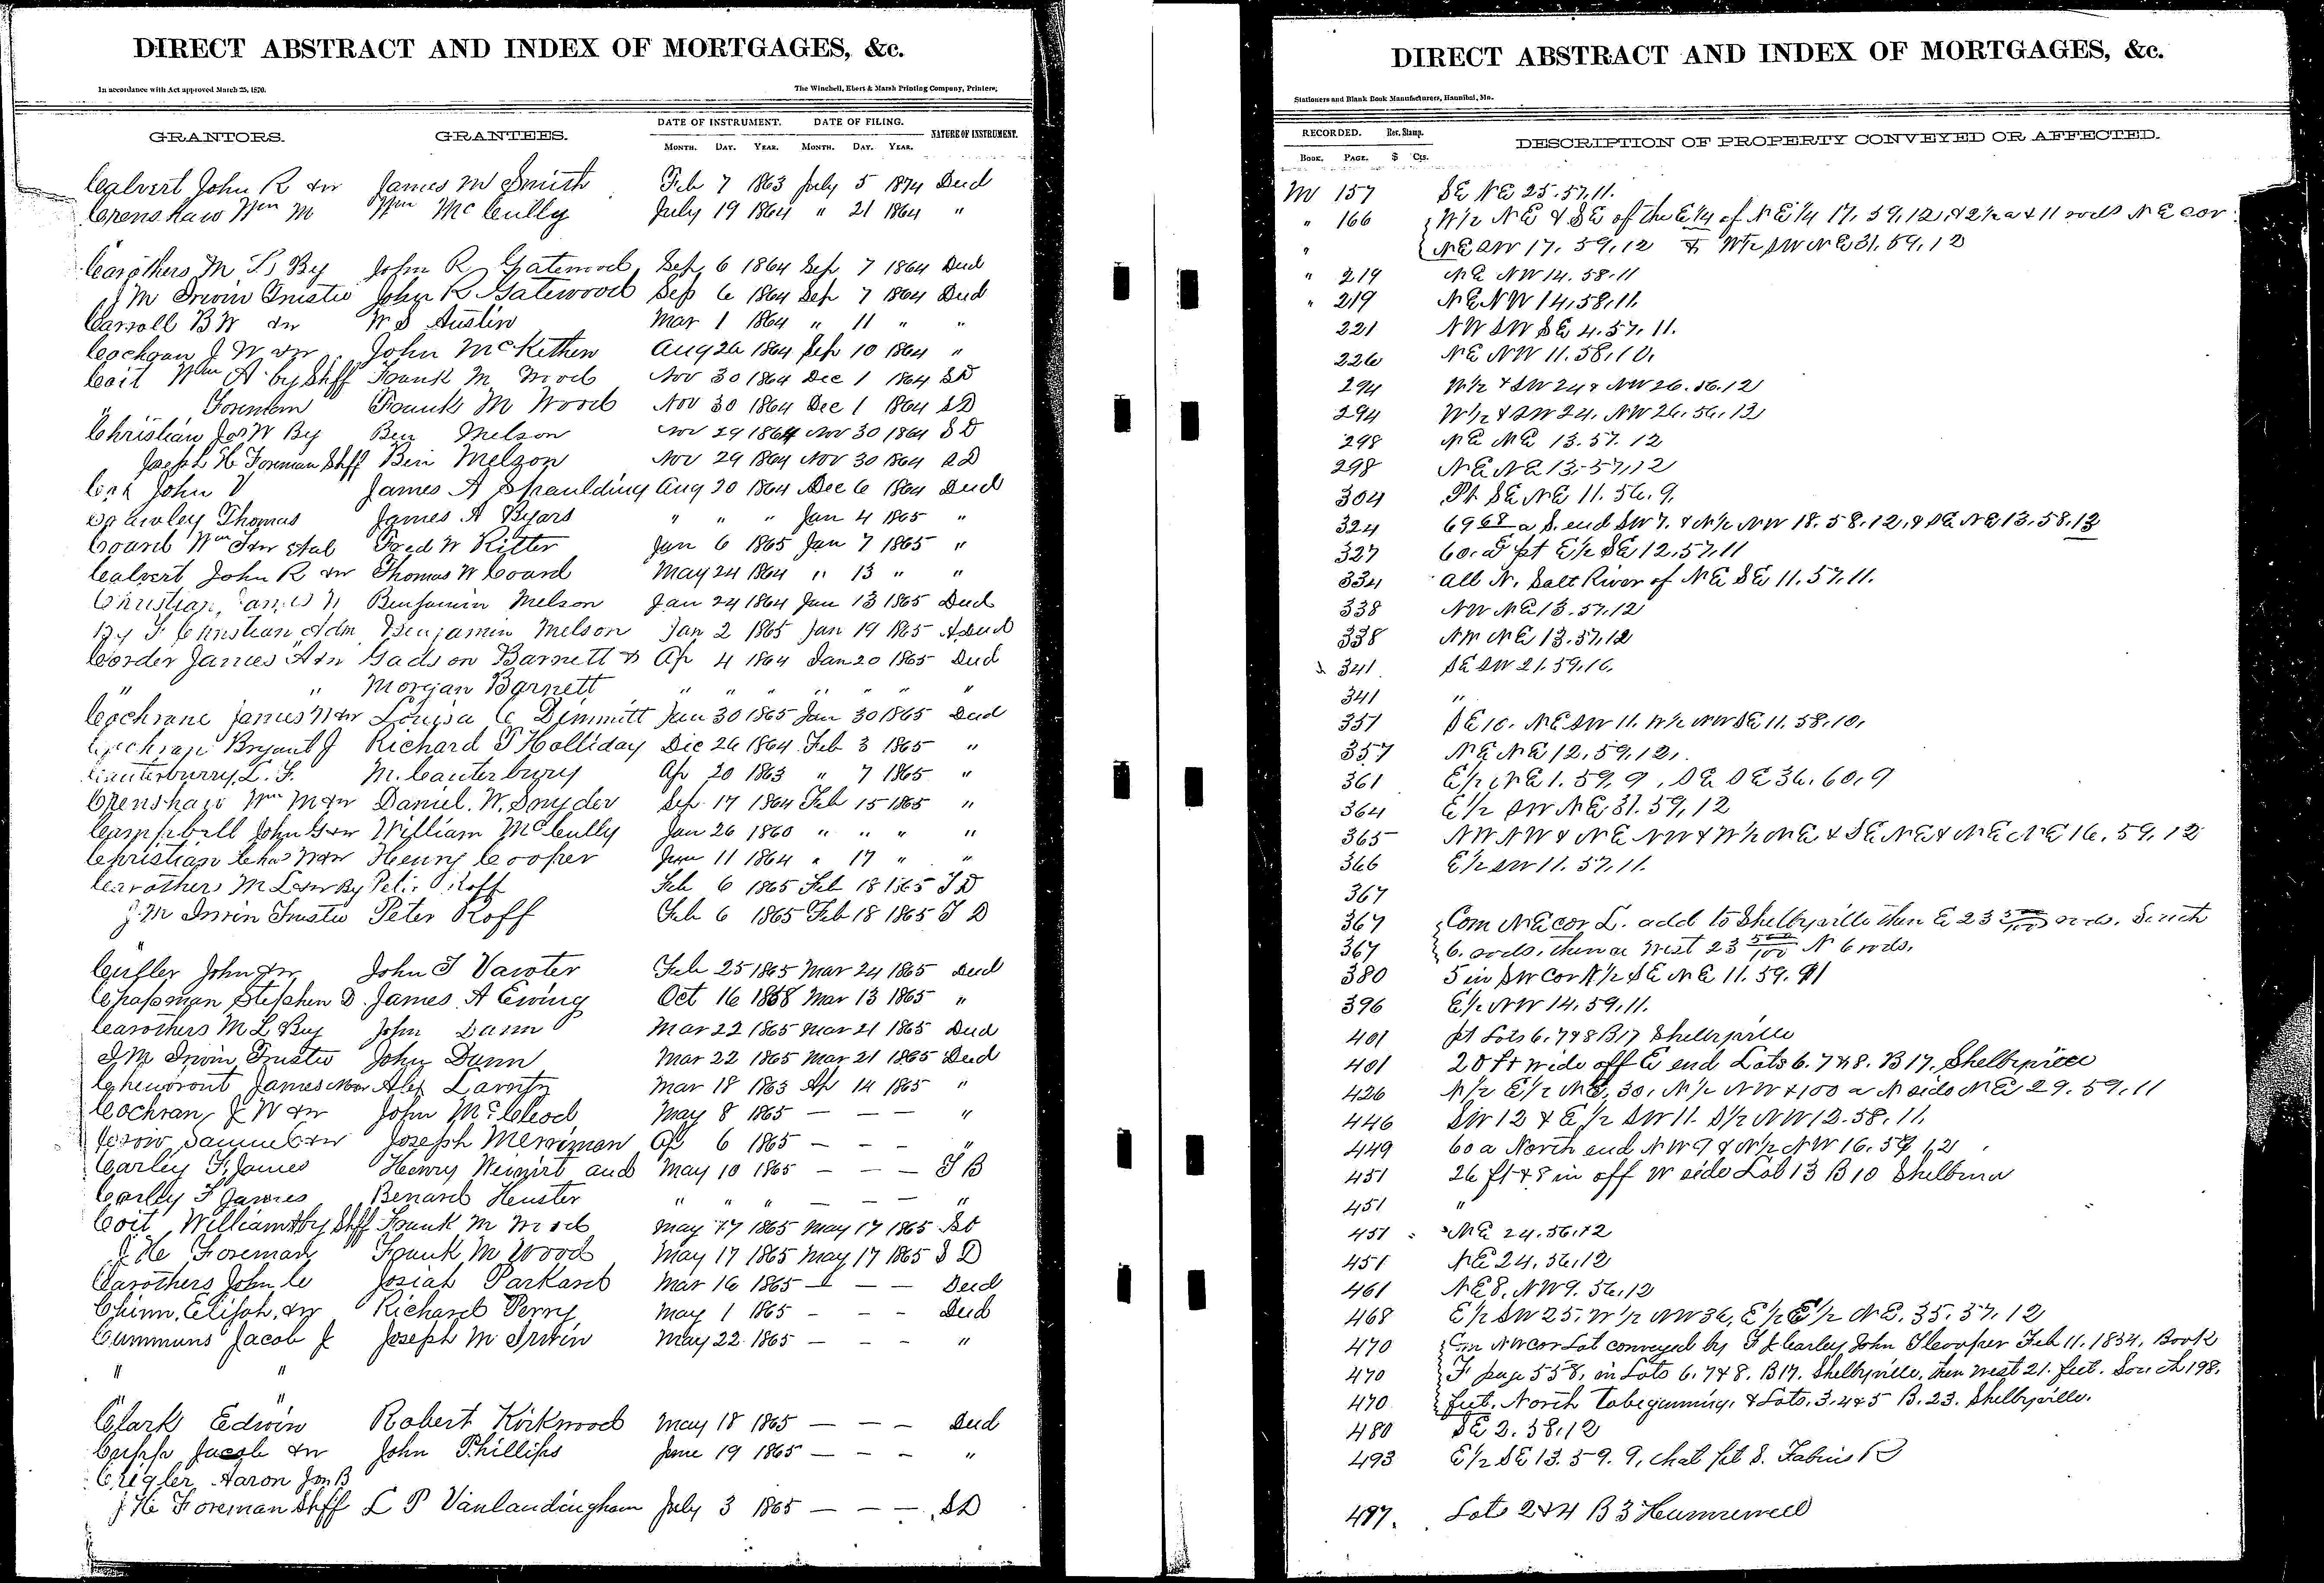 DIRECT ABSTRACT AND INDEX OF MORTGAGES, &c.
In accordance with Act approved March 25, 1870.
The Winchell, Ebert & Marsh Printing Company, Printers,
GRANTORS. GRANTEES. DATE OF INSTRUMENT. DATE OF FILING. NATURE OF INSTRUMENT.
MONTH. DAY. YEAR. MONTH. DAY. YEAR.
Calvert John R &w James M Smith Feb 7 1863 July 5 1874 Deed
Crenshaw Wm M Wm McCully July 19 1864 " 21 1864 "
Carothers M L By John R Gatewood Sep 6 1864 Sep 7 1864 Deed
J M Irwin Trustee John R Gatewood Sep 6 1864 Sep 7 1864 Deed
Carroll B W &w W S Austin Mar 1 1864 " 11 " "
Cochran J W &w John McKethen Aug 26 1864 Sep 10 1864 "
Coit Wm A by Shff Frank M Wood Nov 30 1864 Dec 1 1864 SD
" Foreman Frank M Wood Nov 30 1864 Dec 1 1864 SD
Christian Jas W By Ben Melson Nov 29 1864 Nov 30 1864 SD
Joseph H Foreman Shff Ben Melson Nov 29 1864 Nov 30 1864 SD
John V James A Spaulding Aug 20 1864 Dec 6 1864 Deed
Crawley Thomas James A Byars " " " Jan 4 1865 "
Coard Wm T &w et al Fred W Ritter Jan 6 1865 Jan 7 1865 "
Calvert John R &w Thomas W Coard May 24 1864 " 13 " "
Christian, James W Benjamin Melson Jan 24 1864 Jan 13 1865 Deed
By F Christian Adm Benjamin Melson Jan 2 1865 Jan 19 1865 A Deed
Corder James A &w Gadson Barnett & Ap 4 1864 Jan 20 1865 Deed
" " Morgan Barnett " " " " " " "
Cochrane James W &w Louisa C Dimmitt Jan 30 1865 Jan 30 1865 Deed
Cochran Bryant J Richard P Holliday Dec 26 1864 Feb 3 1865 "
Canterburry, L. F. M. Canterbury Ap 20 1863 " 7 1865 "
Crenshaw Wm M &w Daniel. W. Snyder Sep 17 1864 Feb 15 1865 "
Campbell John G &w William McCully Jan 26 1860 " " " "
Christian Chas W &w Henry Cooper June 11 1864 " 17 " "
Carothers M L &w By Peter Roff Feb 6 1865 Feb 18 1865 T D
J. M Irwin Trustee Peter Roff Feb 6 1865 Feb 18 1865 T D
John &w John T Vawter Feb 25 1865 Mar 24 1865 Deed
Chapman Stephen D. James. A Ewing Oct 16 1858 Mar 13 1865 "
Carothers M L By John Dunn Mar 22 1865 Mar 21 1865 Deed
J M Irwin Trustee John Dunn Mar 22 1865 Mar 21 1865 Deed
Chenoront James M &w Alex Mar 18 1863 Ap 14 1865 "
Cochran J W &w John McCleod May 8 1865 — — — "
Samuel &w Joseph Merriman Ap 6 1865 — — — "
Carley F. James Henry and May 10 1865 — — — T B
Carley F James Benard Heuster " " " — — — "
Coit William A by Shff Frank M Wood May 17 1865 May 17 1865 SD
J H Foreman Frank M Wood May 17 1865 May 17 1865 S D
Carothers John C Josiah Parkard Mar 16 1865 — — — Deed
Chinn, Elijah, &w Richard Perry May 1 1865 — — — Deed
Cummuns Jacob J Joseph M Irwin May 22 1865 — — — "
" "
" "
Clark Edwin Robert Kirkwood May 18 1865 — — — Deed
Cupp Jacob &w John Phillips June 19 1865 — — — "
Crigler Aaron
J H Foreman Shff L P Vanlandingham July 3 1865 — — — SD
DIRECT ABSTRACT AND INDEX OF MORTGAGES, &c.
Stationers and Blank Book Manufacturers, Hannibal, Mo.
RECORDED. Rev. Stamp. DESCRIPTION OF PROPERTY CONVEYED OR AFFECTED.
BOOK. PAGE. $ Cts.
M 157 SE NE 25.57.11.
" 166 W½ NE & SE of the E¼ of NE¼ 17, 59, 12, & 2½ a & 11 rods NE cor
" NE SW 17. 59, 12 & W½ SW NE 31. 59, 12
" 219 NE NW 14. 58.11
" 219 NE NW 14, 58, 11.
221 NW SW SE 4. 57. 11.
226 NE NW 11. 58, 10,
294 W½ & SW 24 & NW 26. 56. 12
294 W½ & SW 24. NW 26. 56, 12
298 NE NE 13. 57. 12
298 NE NE 13. 57, 12
304 Pt SE NE 11. 56. 9,
324 69 68 a S. end SW 7. & N½ NW 18. 58. 12, & SE NE 13. 58. 13
327 60. a pt E½ SE 12, 57, 11
334 all N. Salt River of NE SE 11. 57, 11.
338 NW NE 13. 57, 12
338 NW NE 13. 57, 12
341 SE SW 21. 59, 10,
341 "
351 SE 10. NE SW 11. W½ NW SE 11. 58, 10,
357 NE NE 12, 59, 12,
361 E½ NE 1. 59, 9, SE SE 36. 60, 9
364 E½ SW NE 31. 59, 12
365 NW NW & NE NW & W½ NE & SE NE & NE NE 16. 59, 12
366 E½ SW 11. 57, 11.
367
367 Com NE cor L. add to Shelbyville then E 23 500/100 rods. South
367 6. rods, thence West 23 500/100 N 6 rods.
380 5 in SW Cor N½ SE NE 11. 59. 11
396 E½ NW 14. 59, 11.
401 pt Lots 6, 7 & 8 B 17 Shelbyville
401 20 ft wide off E end Lots 6. 7 & 8. B 17. Shelbyville
426 N½ E½ NE, 30, N½ NW & 100 a N side NE 29. 59. 11
446 SW 12 & E½ SW 11. S½ NW 12. 58, 11.
449 60 a North end NW 9 & N½ NW 16. 59, 12
451 26 ft & 8 in off W side Lot 13 B 10 Shelbina
451 "
451 NE 24. 56, 12
451 NE 24, 56, 12
461 NE 8, NW 9. 56, 12
468 E½ SW 25. W½ NW 36, E½ E½ NE. 35. 57, 12
470 Com NW cor Lot conveyed by F J Carley John T Cooper Feb 11. 1854, Book
470 F page 558, in Lots 6. 7 & 8. B 17. Shelbyville, then West 21. feet. South 198.
470 feet. North to beginning, & Lots, 3, 4 & 5 B. 23. Shelbyville.
480 SE 2. 58, 12
493 E½ SE 13. 59. 9, pt S. Fabius R
497. Lots 2 & 4 B 3 Hunnewell